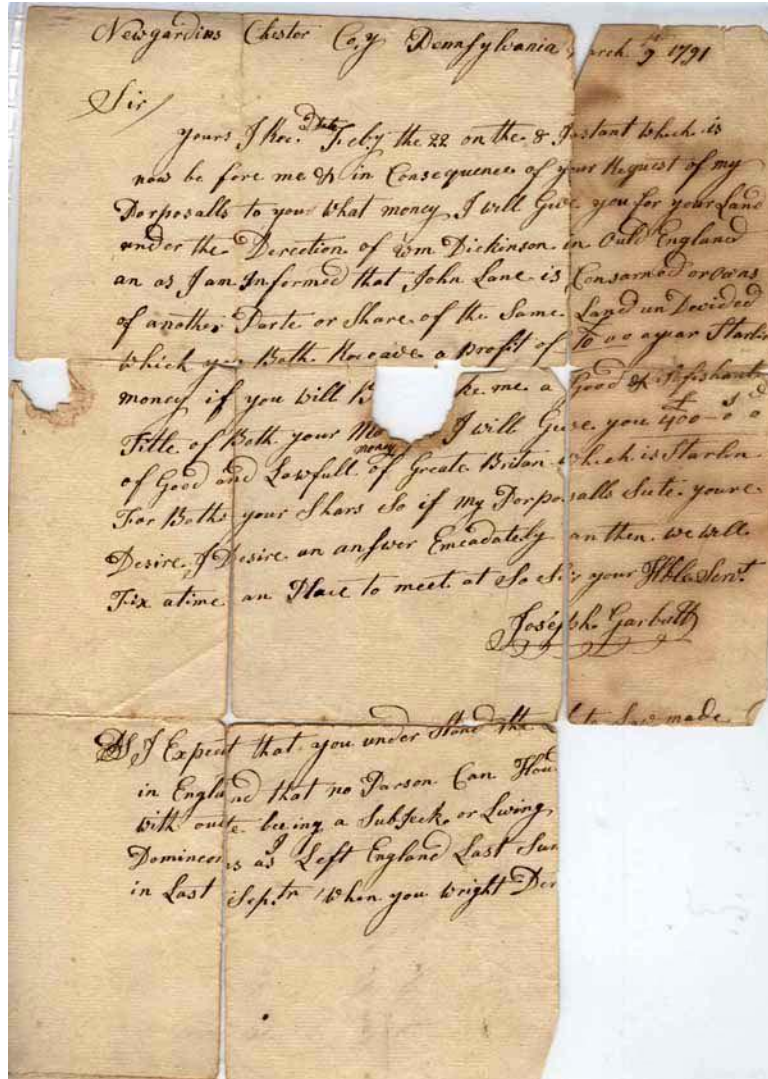 Newgardins Chester Co,y Pennsylvania March 9 1791
Sir
yours I Rec. Date Feby the 22 on the 8 Instant which is
now be fore me & in Consequence of your Request of my
Porposalls to you What money I will Give you for your Land
under the Derection of Wm Dickinson in Ould England
an as I am Informed that John Lane is Consarned or owns
of another Parte or Share of the Same Land un Devided
which you Both Receave a profit of a year Starlin
money if you will me a Good & Sefishant
Title of Both your I will Give you £400-0-0
of Good and Lawfull money of Great Britan which is Starlin
For Boths your Shars So if my Porposalls Sute youre
Desire I Desire an answer Emeadately an then we will
Fix a time an Place to meet at So Sir your Hble Servt
Joseph Garbutt
PS I Expect that you under Stand the Law made
in England that no Parson Can
with oute being a Subjeck or Living
Domineons as I Left England Last
in Last Septr When you Wright